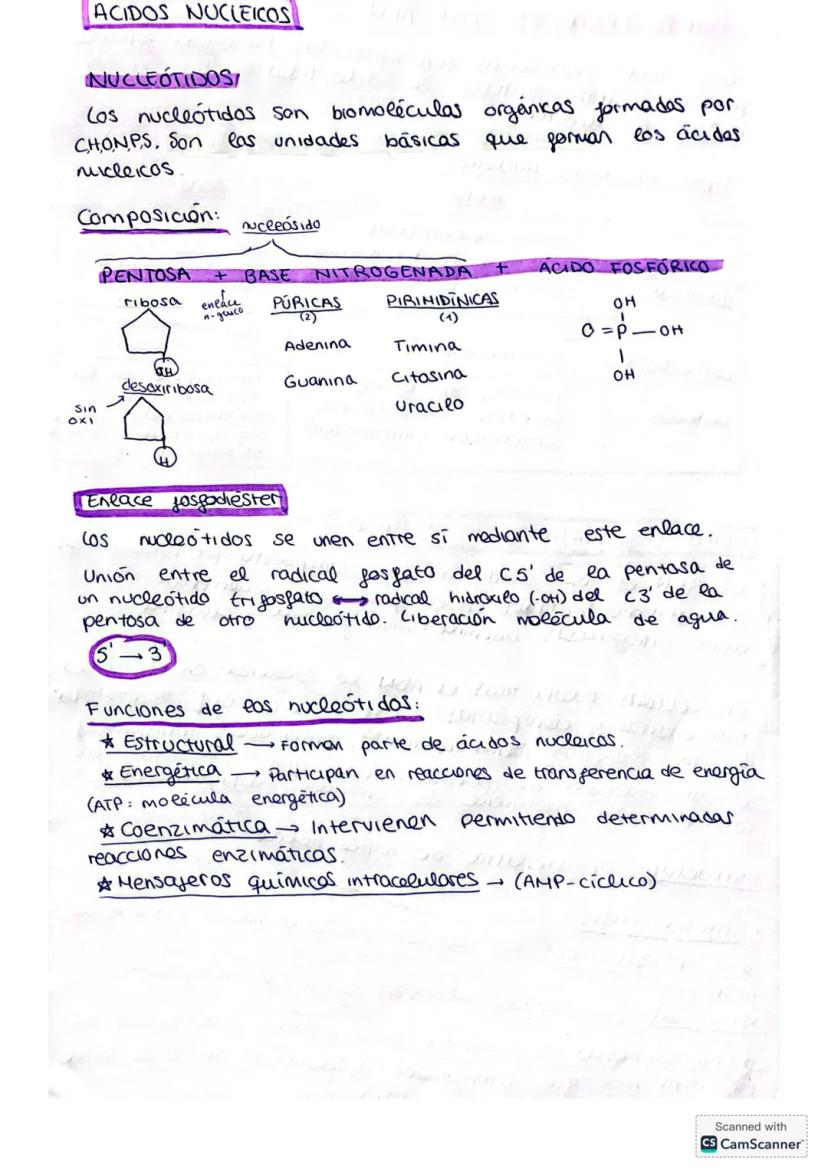 ACIDOS NUCLEICOS
NUCLEÓTIDOS
Los nucleótidos son biomoléculas orgánicas formadas por
C,H,O,N,P,S. Son las unidades básicas que forman los ácidos
nucleicos.
Composición:
nucleósido
PENTOSA + BASE NITROGENADA + ÁCIDO FOSFÓRICO
ribosa
enlace
n-gluco.
PÚRICAS
(2)
PIRIMIDÍNICAS
(1)
OH
O=P—OH
OH
Adenina
Timina
Guanina
Citosina
Uracilo
OH
desoxirribosa
sin
oxi
H
Enlace fosfodiéster
Los nucleótidos se unen entre sí mediante este enlace.
Unión entre el radical fosfato del C5' de la pentosa de
un nucleótido trifosfato ↔ radical hidroxilo (-OH) del C3' de la
pentosa de otro nucleótido. Liberación molécula de agua.
5' → 3'
Funciones de los nucleótidos:
☆ Estructural → Forman parte de ácidos nucleicos.
☆ Energética → Participan en reacciones de transferencia de energía
(ATP: molécula energética)
☆ Coenzimática → Intervienen permitiendo determinadas
reacciones enzimáticas.
☆ Mensajeros químicos intracelulares → (AMP-cíclico)
Scanned with
CS CamScanner